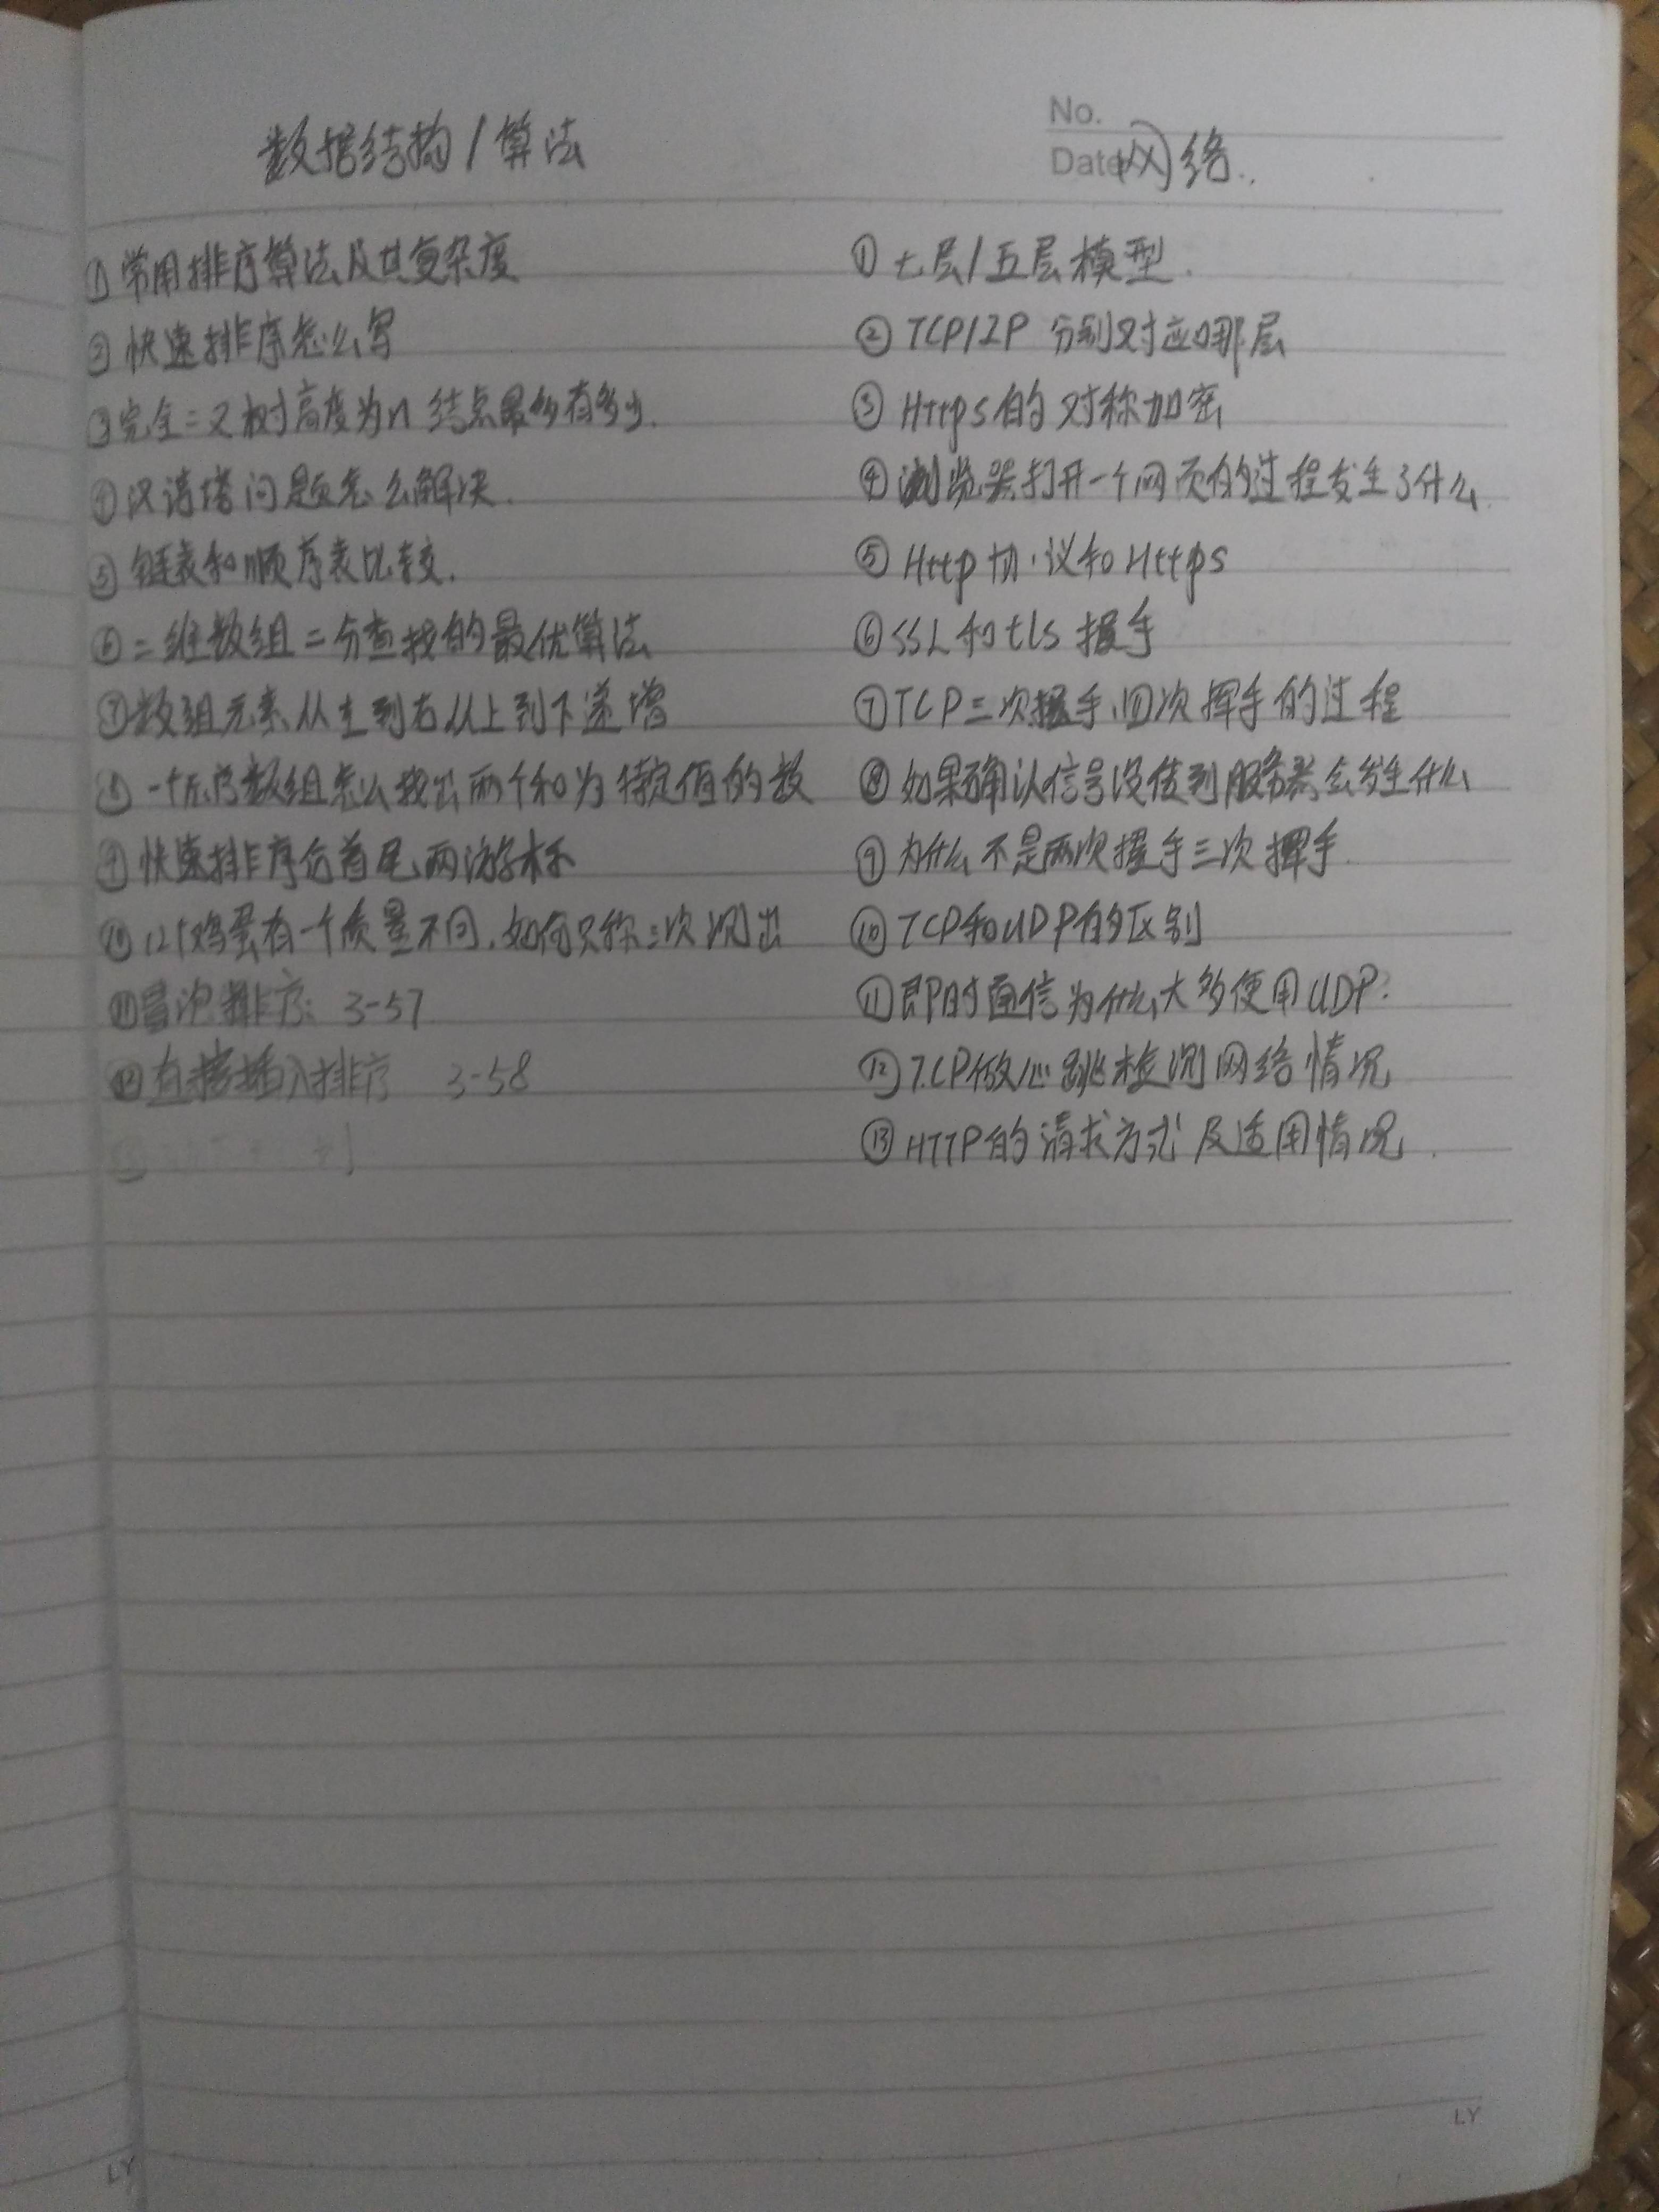 No.
Date
数据结构/算法
①常用排序算法及其复杂度
②快速排序怎么写
③完全二叉树高度为n 结点最多有多少.
④汉诺塔问题怎么解决.
⑤链表和顺序表比较.
⑥二维数组二分查找的最优算法
⑦数组元素从左到右从上到下递增
⑧一个 数组怎么找出两个和为特定值的数
⑨快速排序 首尾两游标
⑩12个鸡蛋有一个质量不同,如何只称三次测出
⑪冒泡排序: 3-57
⑫直接插入排序 3-58
网络
①七层/五层模型.
②TCP/IP 分别对应哪层
③Https的对称加密
④浏览器打开一个网页的过程发生了什么.
⑤Http协议和Https
⑥SSL和tls握手
⑦TCP三次握手、四次挥手的过程
⑧如果确认信号没传到服务器会发生什么
⑨为什么不是两次握手三次挥手.
⑩TCP和UDP的区别
⑪即时通信为什么大多使用UDP?
⑫TCP做心跳检测网络情况
⑬HTTP的请求方式及适用情况.
LY
LY